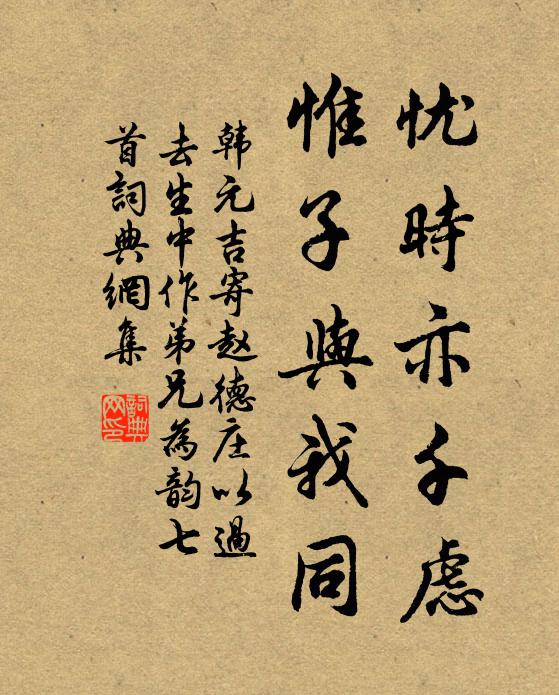 忧時亦千慮
惟子與我同
韩元吉寄赵德庄以過
去生中作弟兄為韵七
首詞典網集
詞典
网印